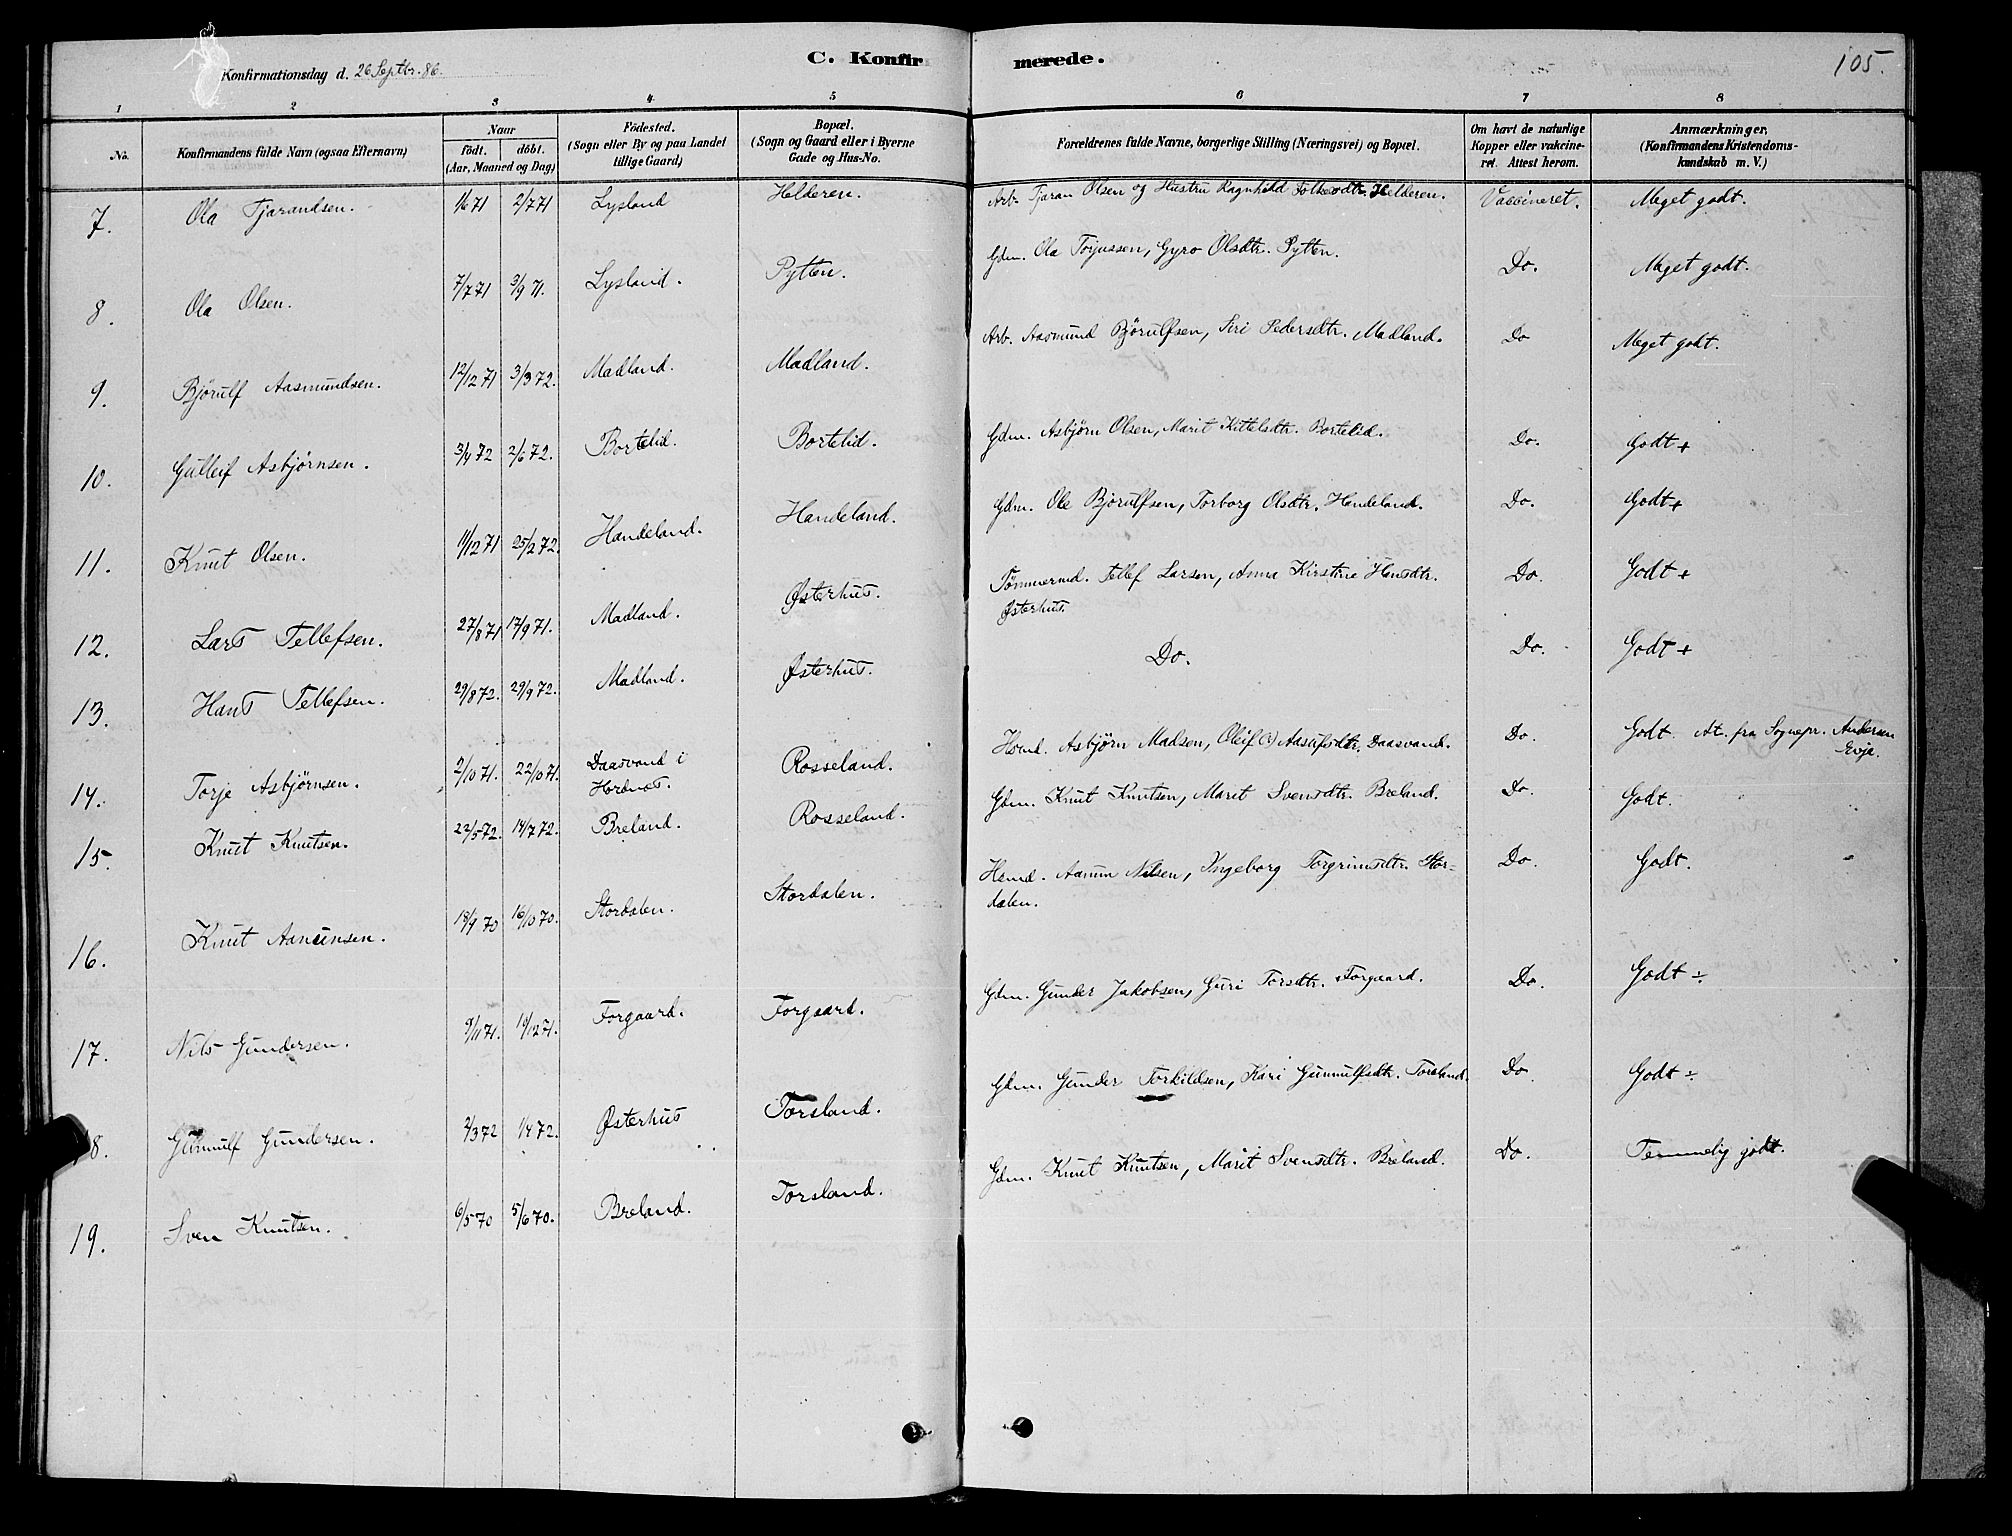 Konfirmationsdag d. 26 Septbr. 86.
C. Konfirmerede.
105.
1 2 3 4 5 6 7 8
No.
Konfirmandens fulde Navn (ogsaa Efternavn)
Naar
födt. döbt.
(Aar, Maaned og Dag)
Födested.
(Sogn eller By og paa Landet
tillige Gaard)
Bopæl.
(Sogn og Gaard eller i Byerne
Gade og Hus-No.
Forældrenes fulde Navne, borgerlige Stilling (Næringsvei) og Bopæl.
Om havt de naturlige
Kopper eller vakcine-
ret. Attest herom.
Anmærkninger,
(Konfirmandens Kristendoms-
kundskab m. V.)
7. Ola Tjarandsen. 1/6 71 2/7 71 Lysland Helderen. Arb. Tjaran Olsen og Hustru Ragnhild Folkevdtr. Helderen. Vaccineret. Meget godt.
8. Ola Olsen. 7/7 71 3/9 71. Lysland. Pytten. Gdm. Ola Torjussen, Gyro Olsdtr. Pytten. Do. Meget godt.
9. Björulf Aasmundsen. 12/12 71 3/3 72. Madland. Madland. Arb. Aasmund Björulfsen, Siri Pedersdtr. Madland. Do Meget godt.
10. Gulleif Asbjörnsen. 3/4 72 2/6 72. Bortelid. Bortelid. Gdm. Asbjörn Olsen, Marit Kittelsdtr. Bortelid. Do. Godt +
11. Knut Olsen. 11/12 71 25/2 72. Handeland. Handeland. Gdm. Ole Björulfsen, Torborg Olsdtr. Handeland. Do. Godt +
12. Lars Tellefsen. 27/8 71 17/9 71. Madland. Østerhus. Tömmermd. Tellef Larsen, Anna Kirstine Hansdtr.
Østerhus. Do. Godt +
13. Hans Tellefsen. 29/8 72. 29/9 72. Madland. Østerhus. Do. Do. Godt +
14. Torje Asbjörnsen. 2/10 71. 22/10 71. Daasvand i
Hordnes. Rosseland. Hsmd. Asbjörn Madsen, Oleif (?) Aasulfsdtr. Daasvand. Do. Godt. At. fra Sognepr. Andersen
Evje.
15. Knut Knutsen. 22/5 72. 14/7 72. Breland. Rosseland. Gdm. Knut Knutsen, Marit Svensdtr. Breland. Do. Godt.
16. Knut Aanunsen. 18/9 70 16/10 70. Stordalen. Stordalen. Hsmd. Aanun Nilsen, Ingeborg Torgrimsdtr. Stor-
dalen. Do. Godt.
17. Nils Gundersen. 9/11 71. 10/12 71. Forgaard. Forgaard. Gdm. Gunder Jakobsen, Guri Torsdtr. Forgaard. Do. Godt ÷
18. Gunnulf Gundersen. 2/3 72 1/4 72. Østerhus Torsland. Gdm. Gunder Torkildsen, Kari Gunnulfsdtr. Torsland. Do. Godt ÷
19. Sven Knutsen. 6/5 70 5/6 70. Breland. Torsland. Gdm. Knut Knutsen, Marit Svensdtr. Breland. Do. Temmelig godt.